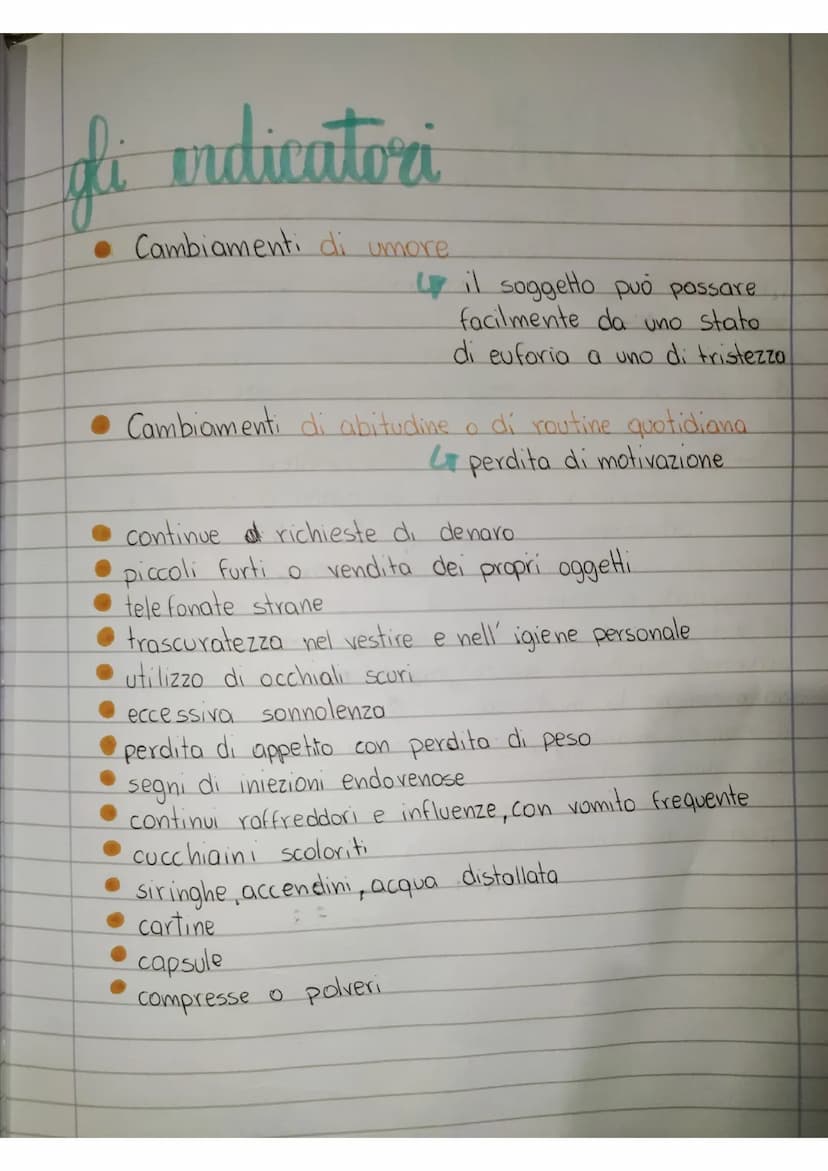 gli indicatori
• Cambiamenti di umore
↳ il soggetto può passare
facilmente da uno stato
di euforia a uno di tristezza
• Cambiamenti di abitudine o di routine quotidiana
↳ perdita di motivazione
• continue richieste di denaro
• piccoli furti o vendita dei propri oggetti
• telefonate strane
• trascuratezza nel vestire e nell'igiene personale
• utilizzo di occhiali scuri
• eccessiva sonnolenza
• perdita di appetito con perdita di peso
• segni di iniezioni endovenose
• continui raffreddori e influenze, con vomito frequente
• cucchiaini scoloriti
• siringhe, accendini, acqua distallata
• cartine
• capsule
• compresse o polveri